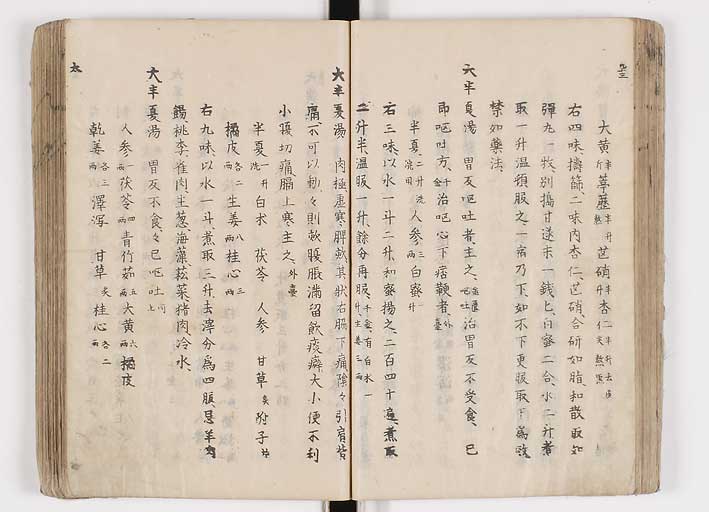 大黄半斤葶藶半升熬芒硝半升杏仁半升去皮尖熬黒
右四味擣篩二味内杏仁芒硝合研如脂和散取如
彈丸一枚別搗甘遂末一錢匕白蜜二合水二升煮
取一升温頓服之一宿乃下如不下更服取下為效
禁如藥法
大半夏湯 胃反呕吐者主之 治胃反不受食 已
即呕吐方 千金 治呕心下痞鞕者 外臺
半夏二升洗 人参三兩 白蜜一升
右三味以水一斗二升和蜜揚之二百四十遍煮取
二升半温服一升餘分再服
大半夏湯 肉極虚寒脾欬其状右脇下痛陰々引肩背
痛不可以動々則欬腹脹満留飲痰癖大小便不利
小腹切痛膈上寒主之 外臺
半夏一升洗 白朮 茯苓 人参 甘草炙 附子炮
橘皮各二兩 生姜八兩 桂心三兩
右九味以水一斗煮取三升去滓分為四服忌羊肉
餳桃李雀肉生葱海藻菘菜猪肉冷水
大半夏湯 胃反不食々已呕吐 同上
人参一兩 茯苓四兩 青竹茹五兩 大黄六兩 橘皮
乾姜各三兩 澤瀉 甘草炙 桂心各二兩
太